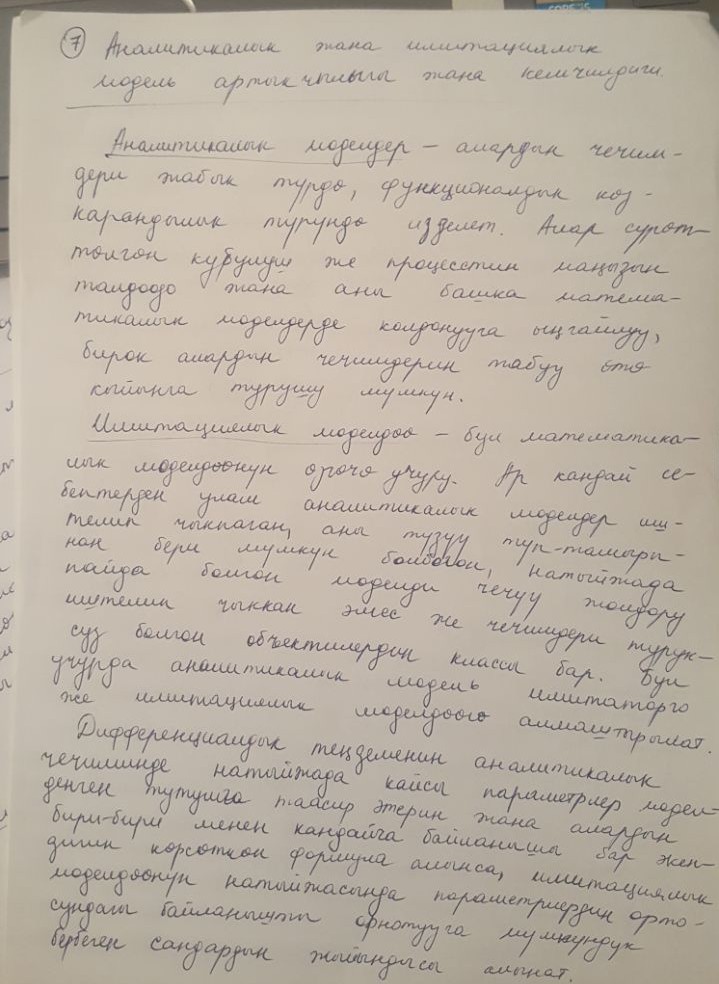 7 Аналитикалык жана имитациялык
модель артыкчылыгы жана кемчилдиги.
Аналитикалык моделдер – алардын чечим-
дери жабык турдө, функционалдык көз-
карандылык турундө изделет. Алар сүрөт-
төлгөн кубулуш же процесстин маңызын
талдоодо жана аны башка матема-
тикалык моделдерде колдонууга ыңгайлуу,
бирок алардын чечимдерин табуу өтө
кыйынга турушу мумкун.
Имитациялык моделдөө – бул математика-
лык моделдөөнүн өзгөчө учуру. Ар кандай се-
бептерден улам аналитикалык моделдер иш-
телип чыкпаган, аны тузуу туп-тамыры-
нан бери мумкун болбогон, натыйжада
пайда болгон моделди чечүү жолдору
иштелип чыккан эмес же чечимдери турук-
суз болгон объектилердин классы бар. Бул
учурда аналитикалык модель имитаторго
же имитациялык моделдөөгө алмаштрылат.
Дифференциалдык теңдеменин аналитикалык
чечиминде натыйжада кайсы параметрлер модел-
денген тутумга таасир этерин жана алардын
бири-бири менен кандайга байланышы бар экен-
дигин көрсөткөн формула алынса, имитациялык
моделдөөнүн натыйжасында параметрлердин орто-
сундагы байланышты орнотууга мумкундук
бербеген сандардын жыйындысы алынат.